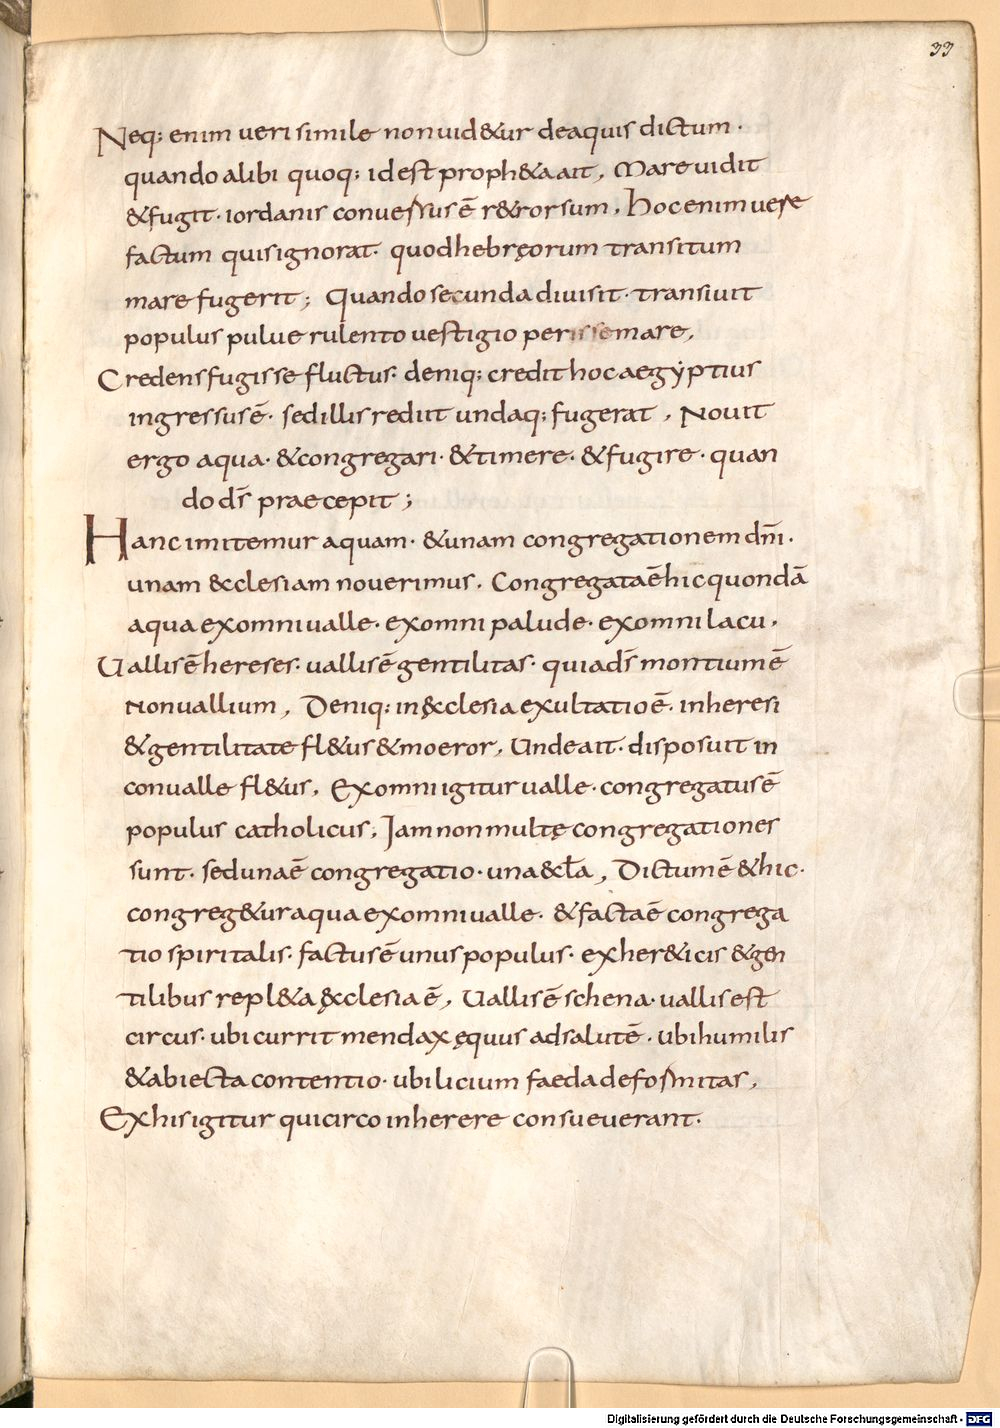 33
Neq; enim veri simile non vid&ur de aquis dictum ·
quando alibi quoq; id est proph&a ait, Mare vidit
& fugit · iordanis conversus ē r&rorsum, Hoc enim vere
factum quis ignorat · quod hebręorum transitum
mare fugerit; Quando secunda divisit · transivit
populus pulverulento vestigio perisse mare,
Credens fugisse fluctus · deniq; credit hoc aegẏptius
ingressus ē · sed illis rediit unda q; fugerat, Novit
ergo aqua · & congregari · & timere · & fugire · quan
do ds̄ praecepit;
Hanc imitemur aquam · & unam congregationem dn̄i ·
unam &cclesiam noverimus, Congregata ē hic quondā
aqua ex omni valle · ex omni palude · ex omni lacu,
Vallis ē hereses · vallis ē gentilitas · quia ds̄ montium ē
non vallium, Deniq; in ęcclesia exultatio ē · in heresi
& gentilitate fl&us & moeror, Unde ait · disposuit in
convalle fl&us, Ex omni igitur valle · congregatus ē
populus catholicus; Iam non multę congregationes
sunt · sed una ē congregatio · una &cl̄a, Dictum ē & hic ·
congreg&ur aqua ex omni valle · & facta ē congrega
tio spiritalis · factus ē unus populus · ex her&icis & gen
tilibus repl&a ęcclesia ē, Vallis ē schena · vallis est
circus · ubi currit mendax ęquus ad salutē · ubi humilis
& abiecta contentio · ubi licium faeda deformitas,
Ex his igitur qui circo inherere consueverant ·
Digitalisierung gefördert durch die Deutsche Forschungsgemeinschaft - DFG